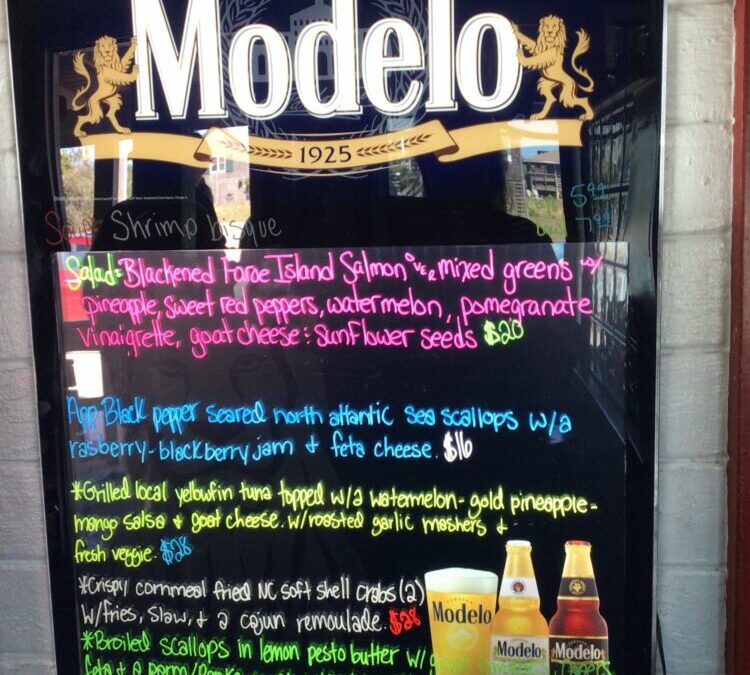 Modelo
1925
5.99
Soup Shrimp bisque
7.99
Salad: Blackened Faroe Island Salmon over mixed greens w/
pineapple, sweet red peppers, watermelon, pomegranate
vinaigrette, goat cheese & sunflower seeds $20
App Black pepper seared north atlantic sea scallops w/a
rasberry-blackberry jam + feta cheese. $16
*Grilled local yellowfin tuna topped w/a watermelon-gold pineapple-
mango salsa + goat cheese. w/roasted garlic mashers +
fresh veggie. $28
*Crispy cornmeal fried NC soft shell crabs (2)
w/fries, slaw, + a cajun remoulade. $28
*Broiled scallops in lemon pesto butter w/
feta + a parm/Panko
Modelo
Modelo
Modelo